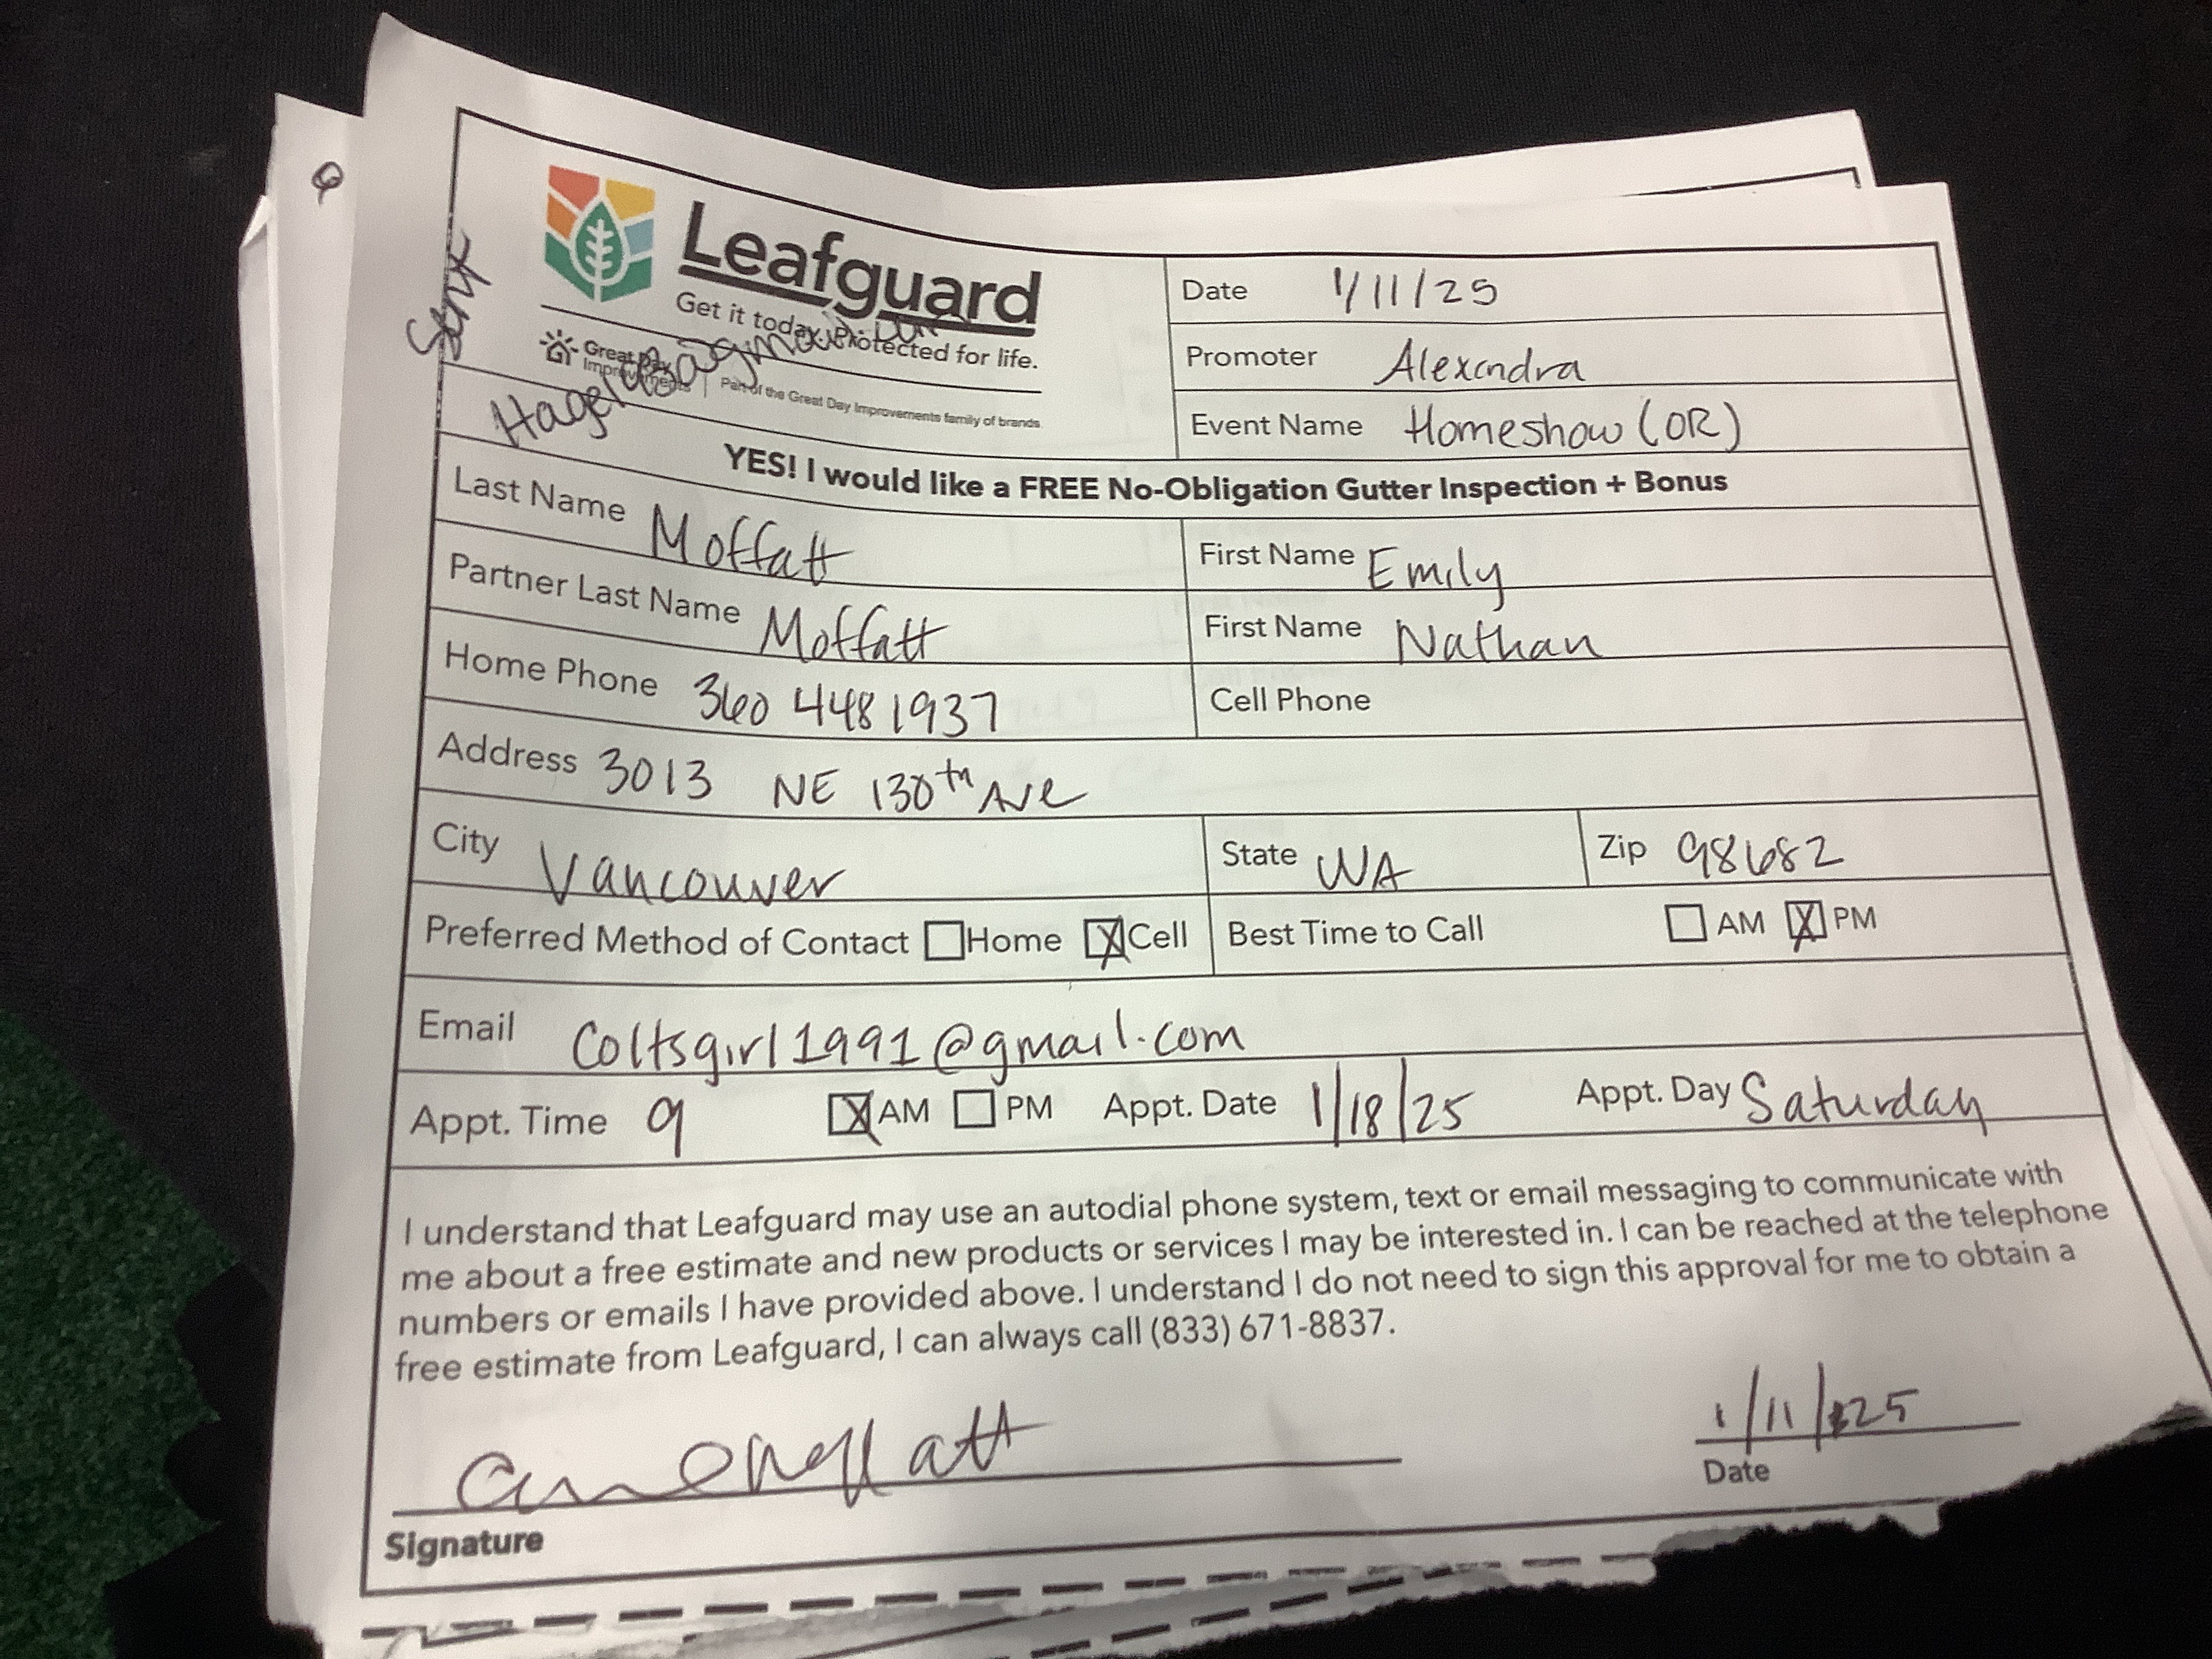 Sent
Leafguard
Get it today. Protected for life.
Great Day Improvements | Part of the Great Day Improvements family of brands
Date 1/11/25
Promoter Alexandra
Event Name Homeshow (OR)
YES! I would like a FREE No-Obligation Gutter Inspection + Bonus
Last Name Moffatt First Name Emily
Partner Last Name Moffatt First Name Nathan
Home Phone 360 448 1937 Cell Phone
Address 3013 NE 130th Ave
City Vancouver State WA Zip 98682
Preferred Method of Contact Home X Cell Best Time to Call AM X PM
Email Coltsgirl1991@gmail.com
Appt. Time 9 X AM PM Appt. Date 1/18/25 Appt. Day Saturday
I understand that Leafguard may use an autodial phone system, text or email messaging to communicate with
me about a free estimate and new products or services I may be interested in. I can be reached at the telephone
numbers or emails I have provided above. I understand I do not need to sign this approval for me to obtain a
free estimate from Leafguard, I can always call (833) 671-8837.
1/11/25
Signature Date